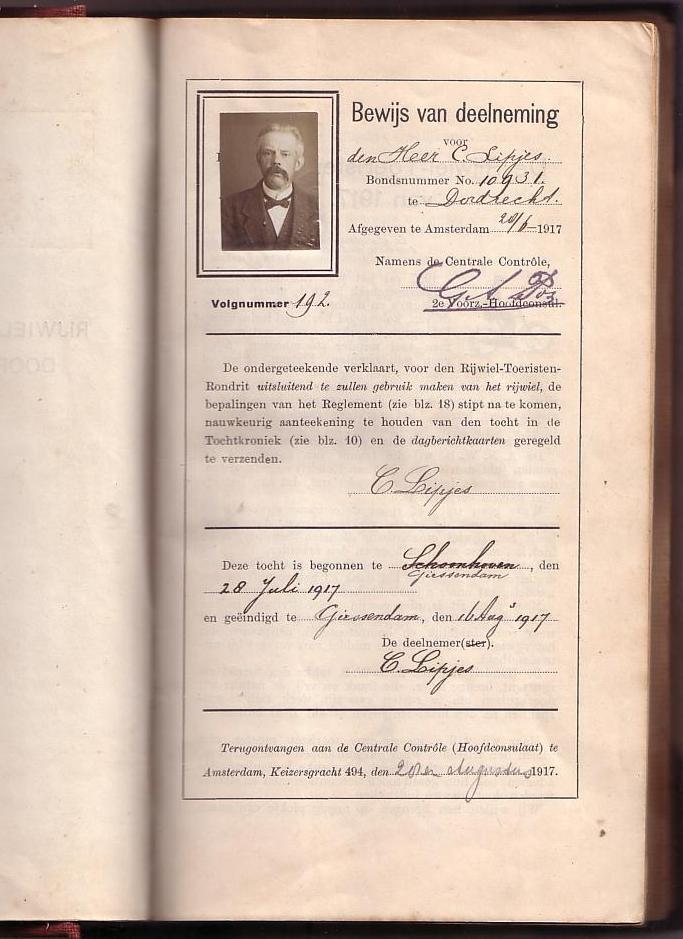 Bewijs van deelneming
voor
den Heer C. Lipjes.
Bondsnummer No. 10931.
te Dordrecht.
Afgegeven te Amsterdam 20/6 1917
Namens de Centrale Contrôle,
2e Voorz.-Hoofdconsul.
Volgnummer 192.
De ondergeteekende verklaart, voor den Rijwiel-Toeristen-
Rondrit uitsluitend te zullen gebruik maken van het rijwiel, de
bepalingen van het Reglement (zie blz. 18) stipt na te komen,
nauwkeurig aanteekening te houden van den tocht in de
Tochtkroniek (zie blz. 10) en de dagberichtkaarten geregeld
te verzenden.
C. Lipjes
Deze tocht is begonnen te Schoonhoven, den
Giessendam
28 Juli 1917
en geëindigd te Giessendam, den 16 Augs 1917
De deelnemer(ster).
C. Lipjes
Terugontvangen aan de Centrale Contrôle (Hoofdconsulaat) te
Amsterdam, Keizersgracht 494, den 20en Augustus 1917.